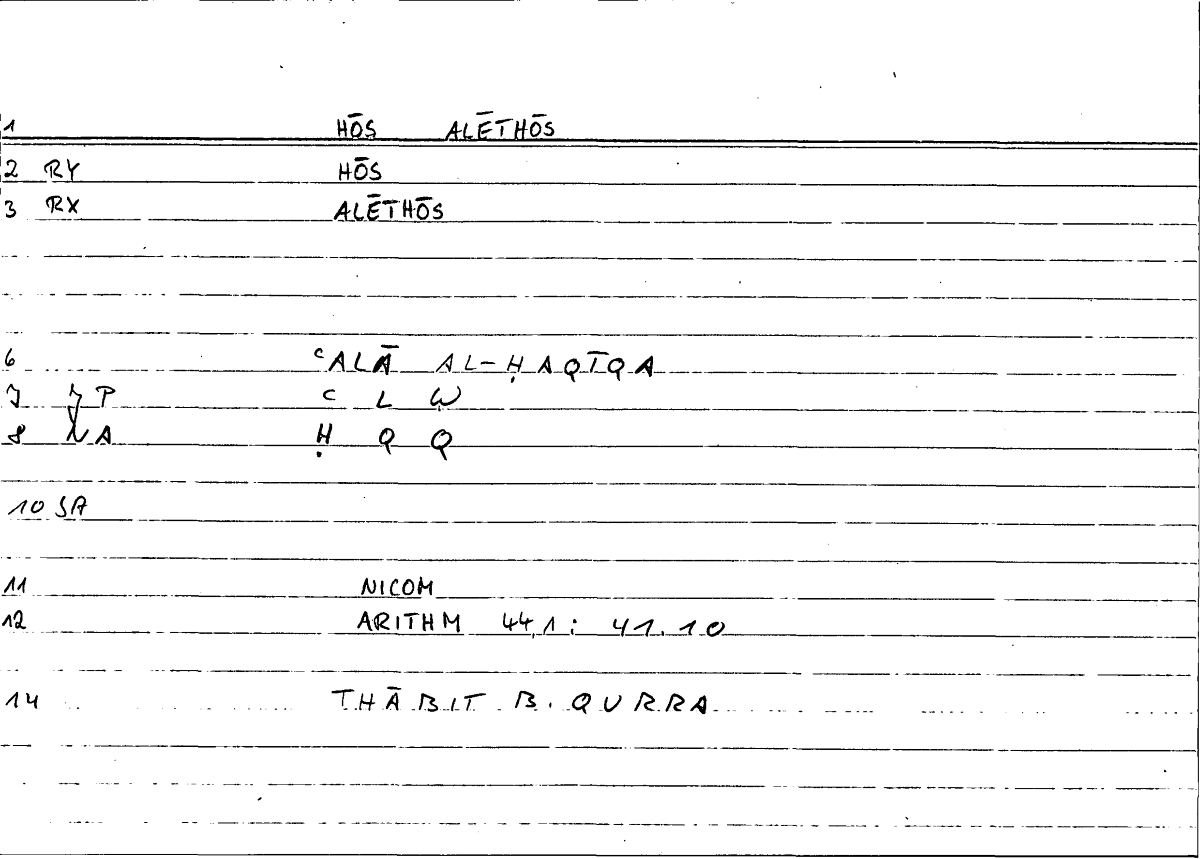 1 HŌS ALĒTHŌS
2 RY HŌS
3 RX ALĒTHŌS
6 ᶜALĀ AL-ḤAQĪQA
7 P ᶜ L W
8 NA Ḥ Q Q
10 SA
11 NICOM
12 ARITHM 44,1 : 41.10
14 THĀBIT B. QURRA